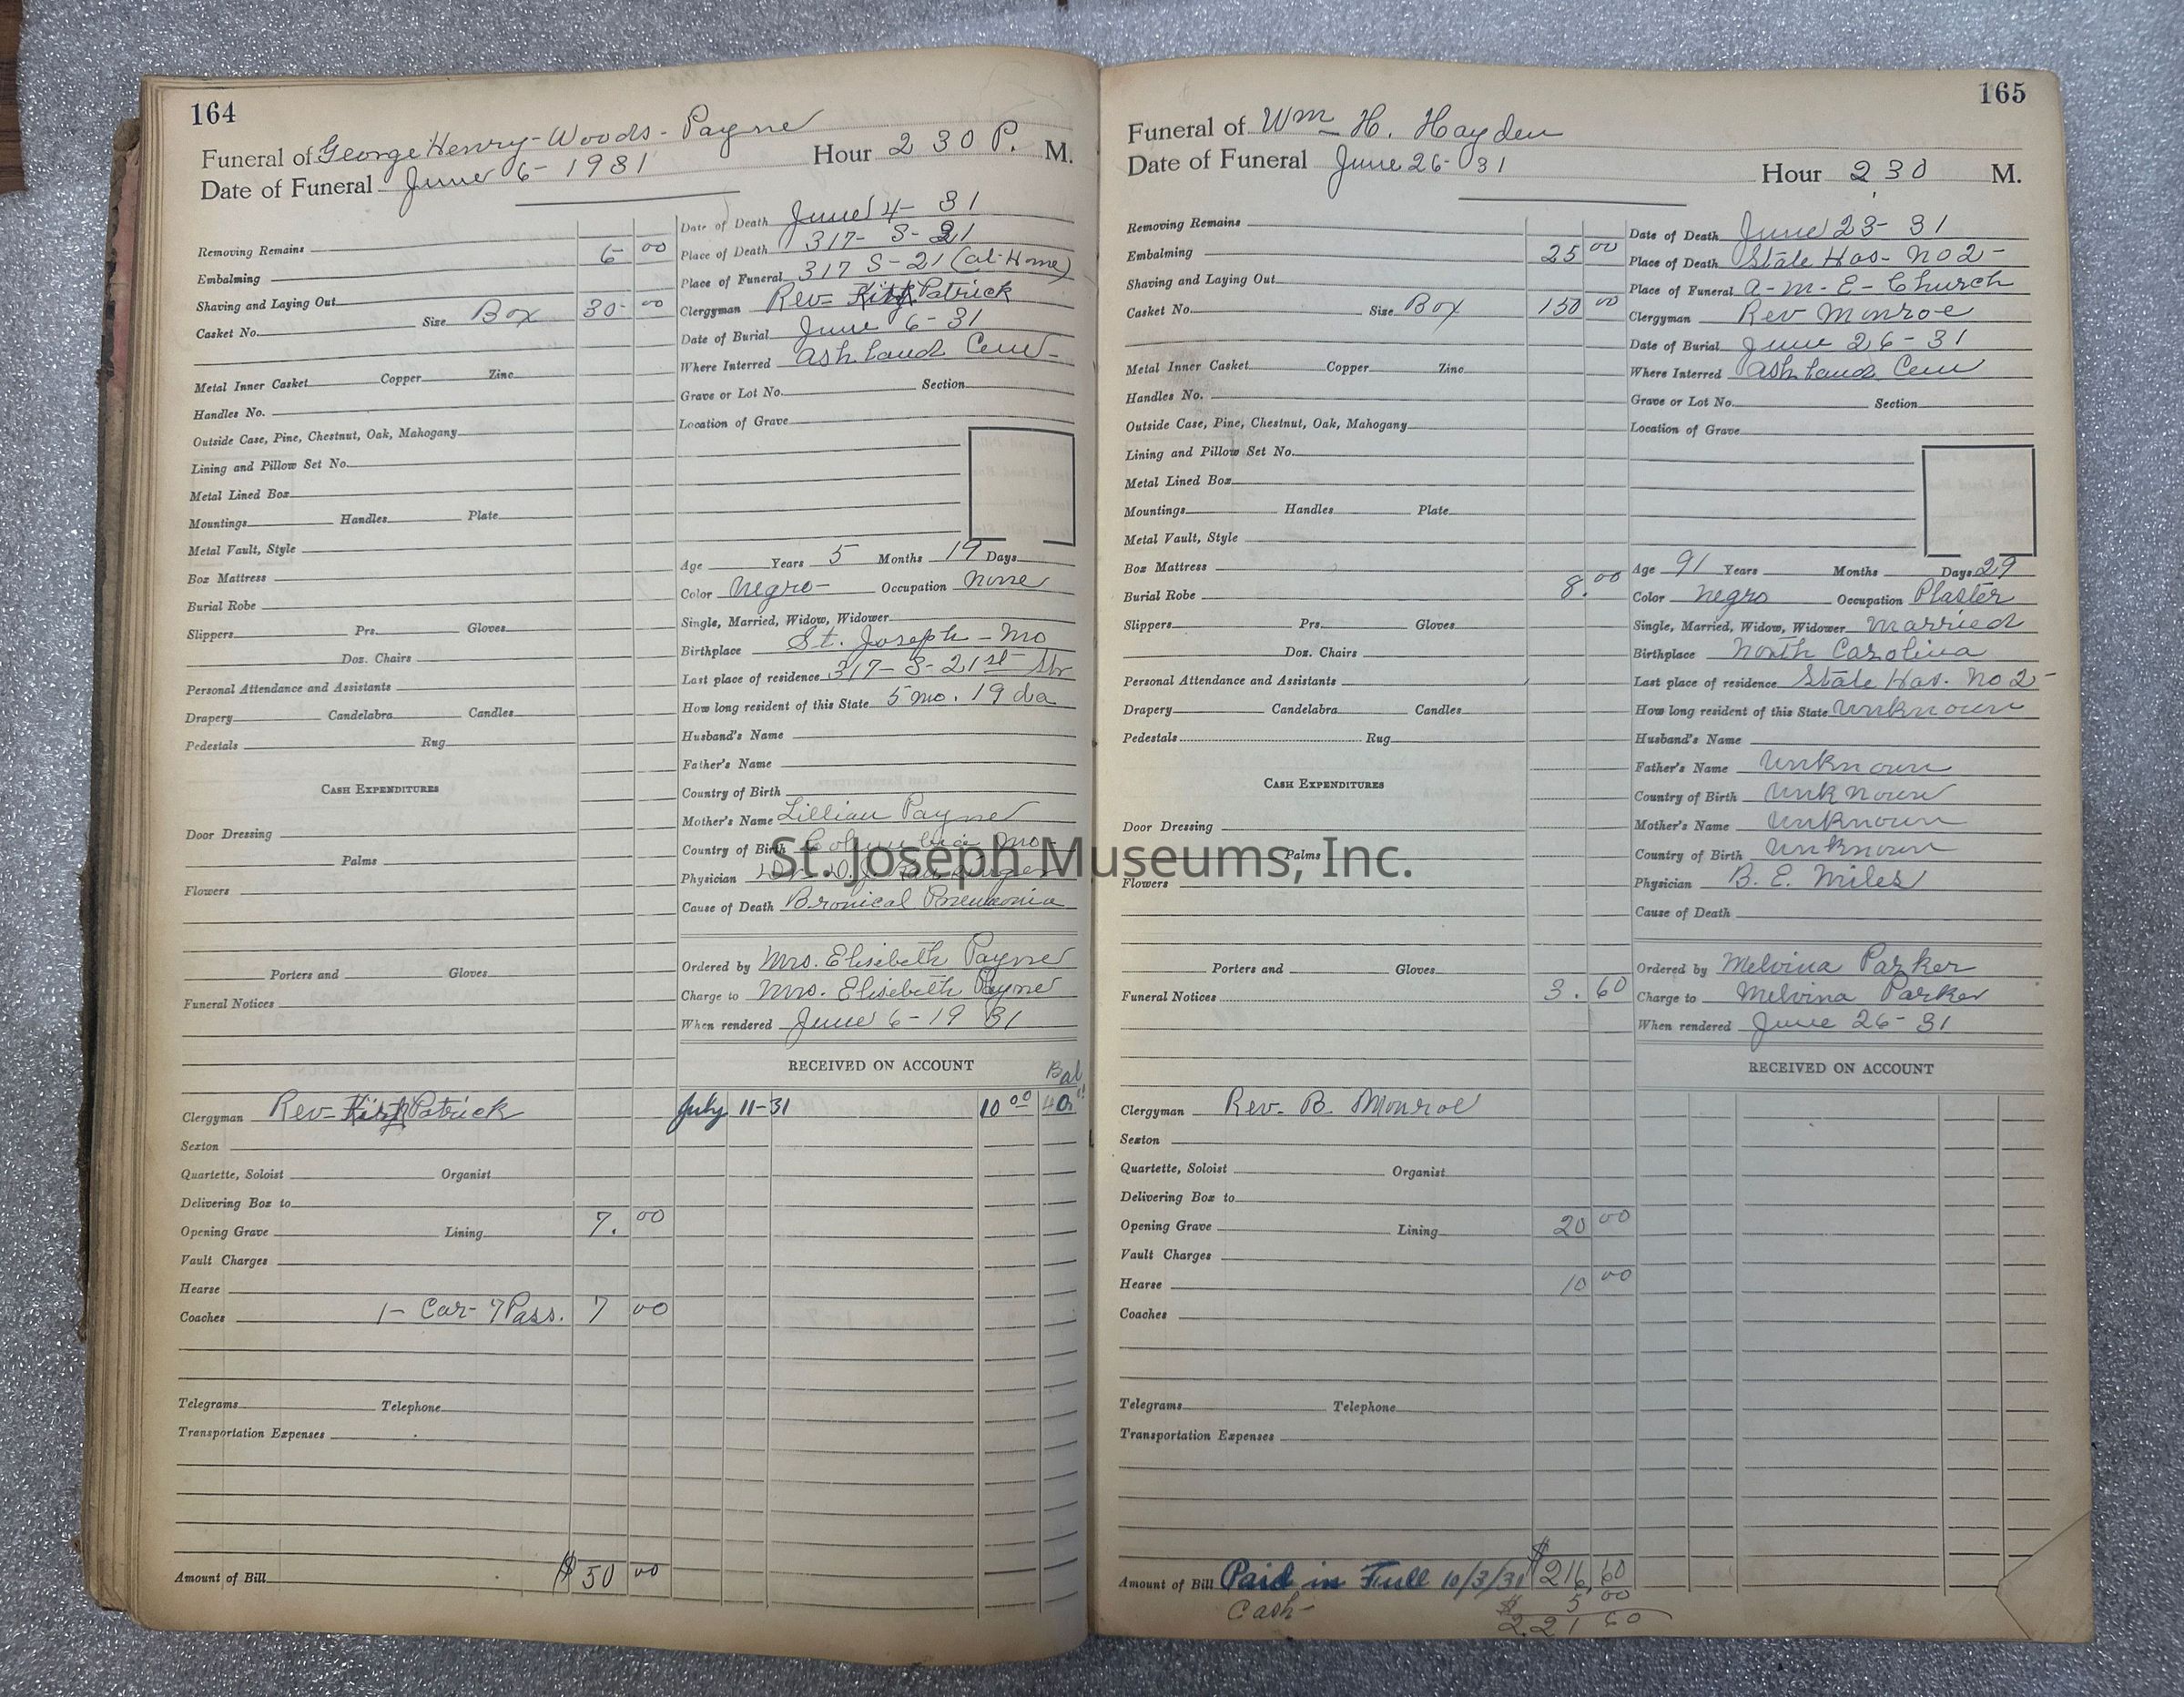 164
Funeral of George Henry-Woods-Payne
Date of Funeral June 6-1931 Hour 2 30 P. M.
Removing Remains
Embalming 6- 00
Shaving and Laying Out
Casket No. Size Box 30- 00
Metal Inner Casket Copper Zinc
Handles No.
Outside Case, Pine, Chestnut, Oak, Mahogany
Lining and Pillow Set No.
Metal Lined Box
Mountings Handles Plate
Metal Vault, Style
Box Mattress
Burial Robe
Slippers Prs. Gloves
Doz. Chairs
Personal Attendance and Assistants
Drapery Candelabra Candles
Pedestals Rug
CASH EXPENDITURES
Door Dressing
Palms
Flowers
Porters and Gloves
Funeral Notices
Clergyman Rev- Kirk Patrick
Sexton
Quartette, Soloist Organist
Delivering Box to
Opening Grave Lining 7. 00
Vault Charges
Hearse
Coaches 1- Car- 7 Pass. 7 00
Telegrams Telephone
Transportation Expenses
Amount of Bill $ 50 00
Date of Death June 4- 31
Place of Death 317- S- 21
Place of Funeral 317 S-21 (at-Home)
Clergyman Rev- Kirk Patrick
Date of Burial June 6-31
Where Interred Ashland Cem-
Grave or Lot No. Section
Location of Grave
Age Years 5 Months 19 Days
Color Negro- Occupation None
Single, Married, Widow, Widower
Birthplace St. Joseph-Mo
Last place of residence 317-S-21st Str
How long resident of this State 5 mo. 19 da
Husband's Name
Father's Name
Country of Birth
Mother's Name Lillian Payne
Country of Birth Columbia Mo-
Physician
Cause of Death Bronical Pneumonia
Ordered by Mrs. Elisebeth Payne
Charge to Mrs. Elisebeth Payne
When rendered June 6-19 31
RECEIVED ON ACCOUNT
Bal
July 11-31 10 00 40
165
Funeral of Wm H. Hayden
Date of Funeral June 26-31 Hour 2,30 M.
Removing Remains
Embalming 25 00
Shaving and Laying Out
Casket No. Size Box 150 00
Metal Inner Casket Copper Zinc
Handles No.
Outside Case, Pine, Chestnut, Oak, Mahogany
Lining and Pillow Set No.
Metal Lined Box
Mountings Handles Plate
Metal Vault, Style
Box Mattress
Burial Robe 8. 00
Slippers Prs. Gloves
Doz. Chairs
Personal Attendance and Assistants
Drapery Candelabra Candles
Pedestals Rug
CASH EXPENDITURES
Door Dressing
Palms
Flowers
Porters and Gloves
Funeral Notices 3. 60
Clergyman Rev. B. Monroe
Sexton
Quartette, Soloist Organist
Delivering Box to
Opening Grave Lining 20 00
Vault Charges
Hearse 10 00
Coaches
Telegrams Telephone
Transportation Expenses
Amount of Bill Paid in Full 10/3/31 $216,60
Cash- $ 5 00
221 60
Date of Death June 23- 31
Place of Death State Hos- No 2-
Place of Funeral A-M-E-Church
Clergyman Rev Monroe
Date of Burial June 26-31
Where Interred Ashland Cem
Grave or Lot No. Section
Location of Grave
Age 91 Years Months Days 29
Color Negro Occupation Plaster
Single, Married, Widow, Widower Married
Birthplace North Carolina
Last place of residence State Hos. No 2-
How long resident of this State Unknown
Husband's Name
Father's Name Unknown
Country of Birth Unknown
Mother's Name Unknown
Country of Birth Unknown
Physician B. E. Miles
Cause of Death
Ordered by Melvina Parker
Charge to Melvina Parker
When rendered June 26-31
RECEIVED ON ACCOUNT
St. Joseph Museums, Inc.